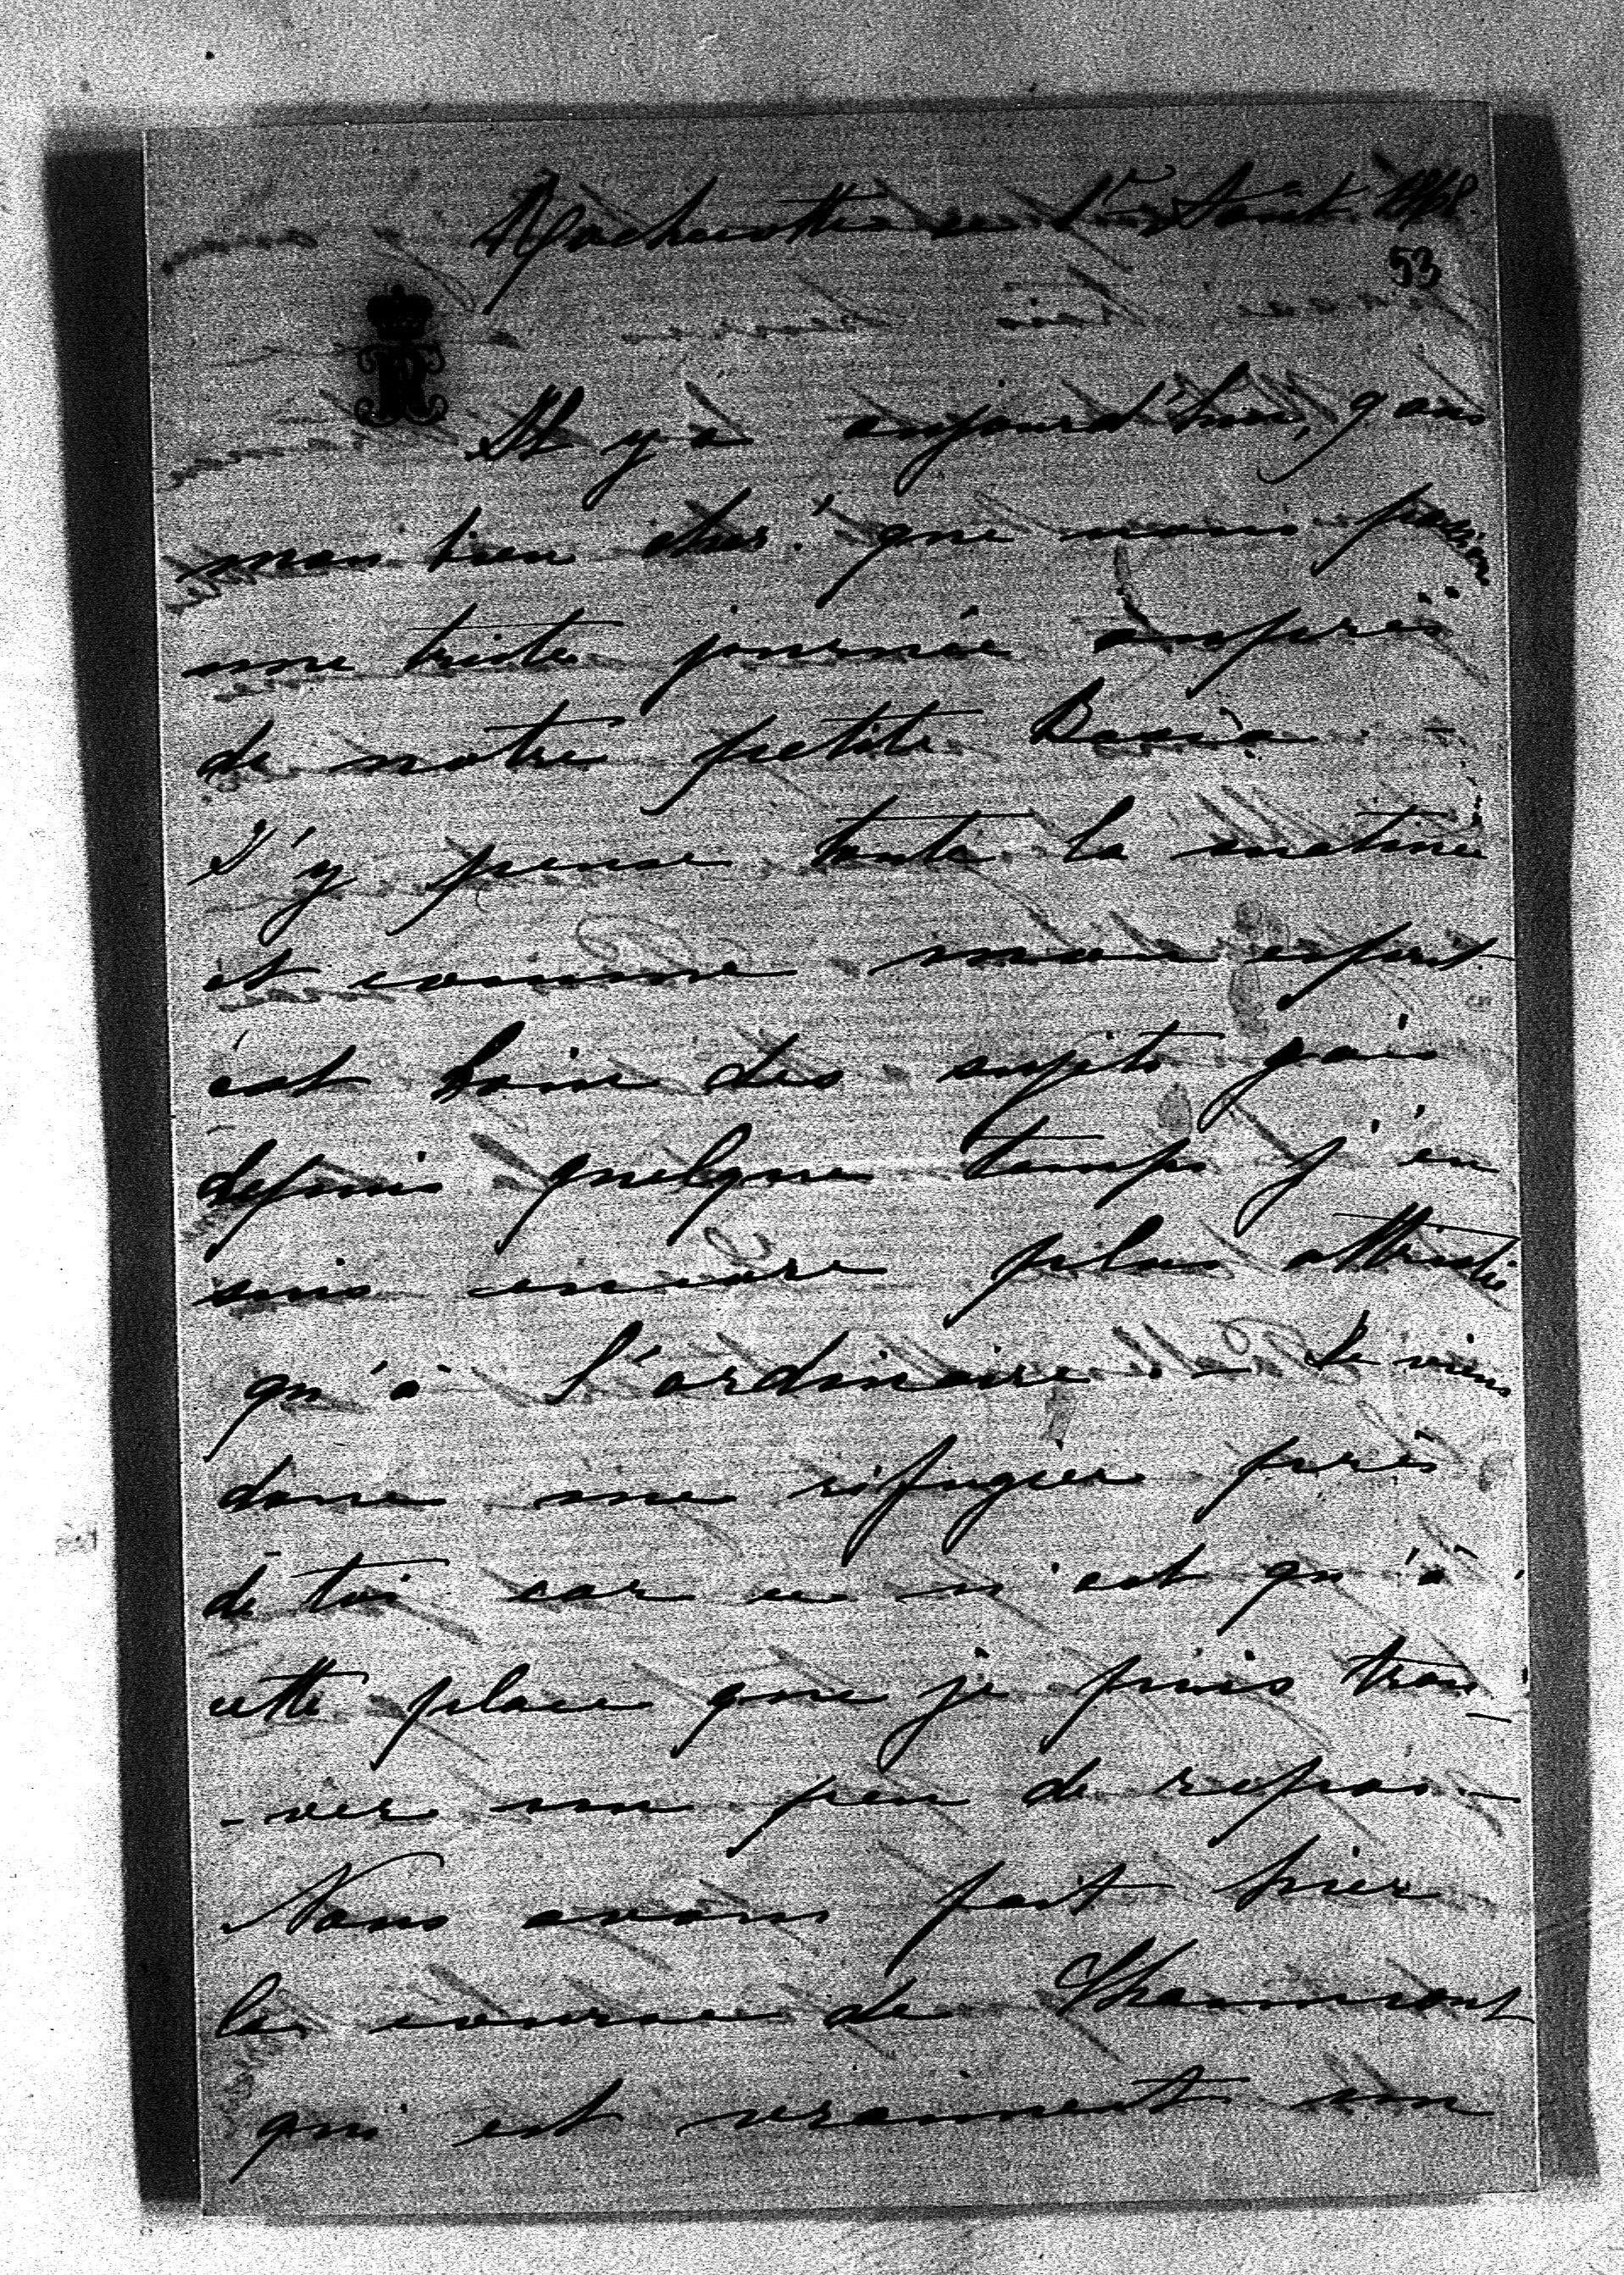 Rochecotte ce 1er Aout 1868.
53
R
Il y a aujourd'hui, 9 ans
mon bien cher! que nous passions
une triste journée auprès
de notre petite
J'y pense toute la matinée
et comme mon esprit
est loin des sujets gais
depuis quelque temps j'en
suis encore plus attristée
qu'à l'ordinaire. – Je viens
donc me réfugier près
de toi car ce n'est qu'à
cette place que je puis trou-
-ver un peu de repos. –
Nous avons fait hier
la course de Chaumont
qui est vraiment un